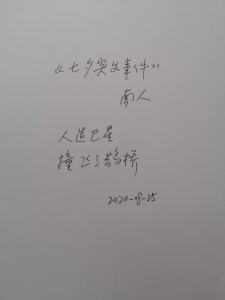 《七夕突发事件》
南人
人造卫星
撞飞了鹊桥
2020-8-25